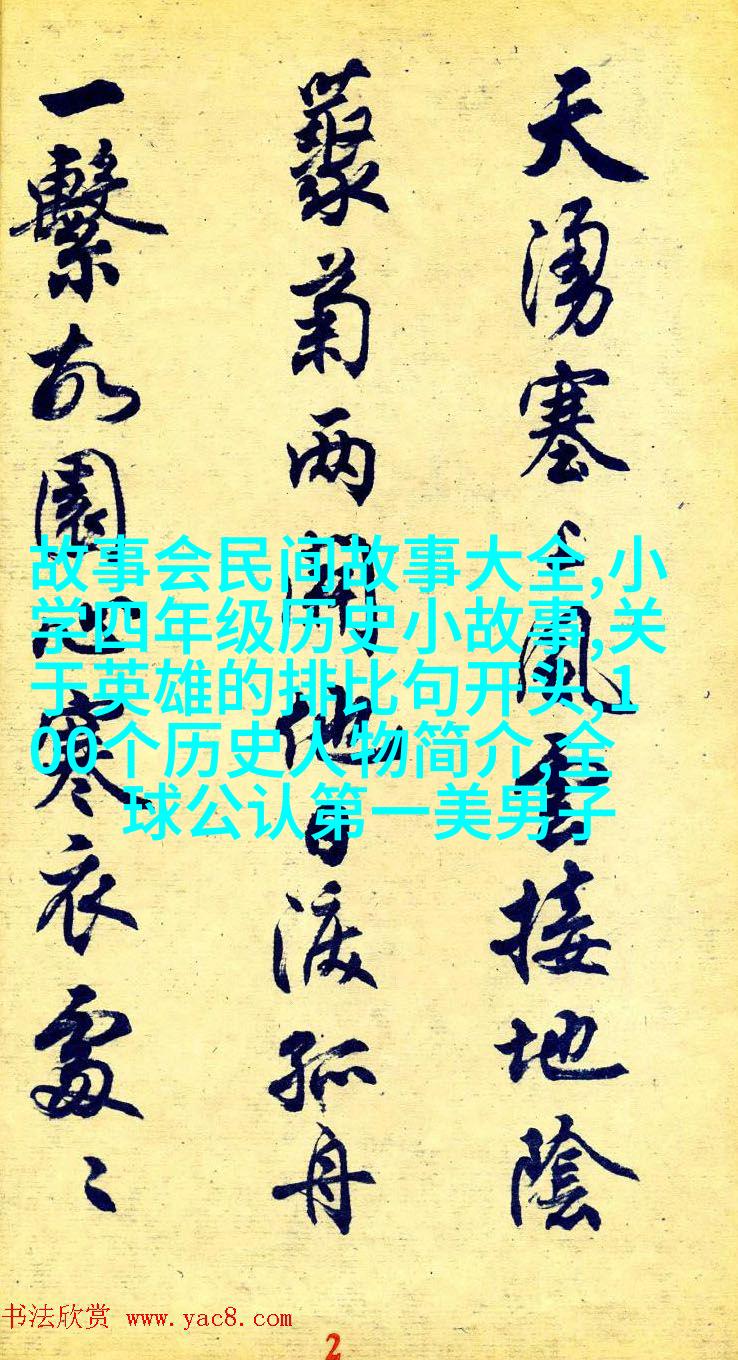 天湧塞上風雲接地陰
藂菊两開他日淚孤舟
一繫故園心寒衣處〻
故事会民间故事大全,小
学四年级历史小故事,关
于英雄的排比句开头,1
00个历史人物简介,全
球公认第一美男子
书法欣赏 www.yac8.com
2